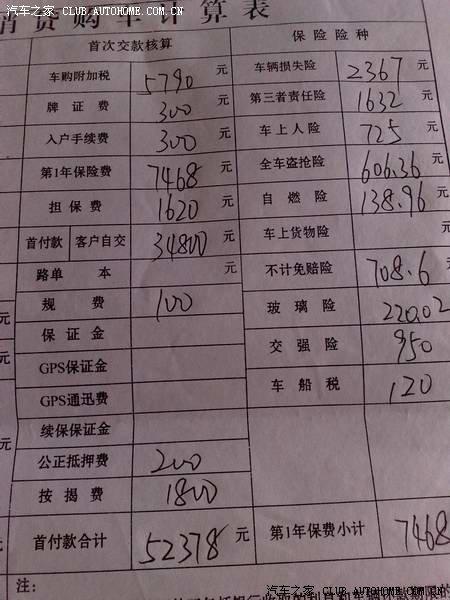 汽车之家 CLUB.AUTOHOME.COM.CN
消贷购车计算表
首次交款核算 保险险种
车购附加税 5790 元 车辆损失险 2367 元
牌证费 300 元 第三者责任险 1632 元
入户手续费 300 元 车上人险 725 元
第1年保险费 7468 元 全车盗抢险 606.36 元
担保费 1620 元 自燃险 138.96 元
首付款 客户自交 34800 元 车上货物险 元
路单本 元 不计免赔险 708.6 元
规费 100 玻璃险 220.02 元
元 保证金 交强险 950 元
GPS保证金 车船税 120 元
GPS通迅费
元 续保保证金
公正抵押费 200
按揭费 1800
首付款合计 52378 元 第1年保费小计 7468
注:
汽车之家 CLUB.AUTOHOME.COM.CN